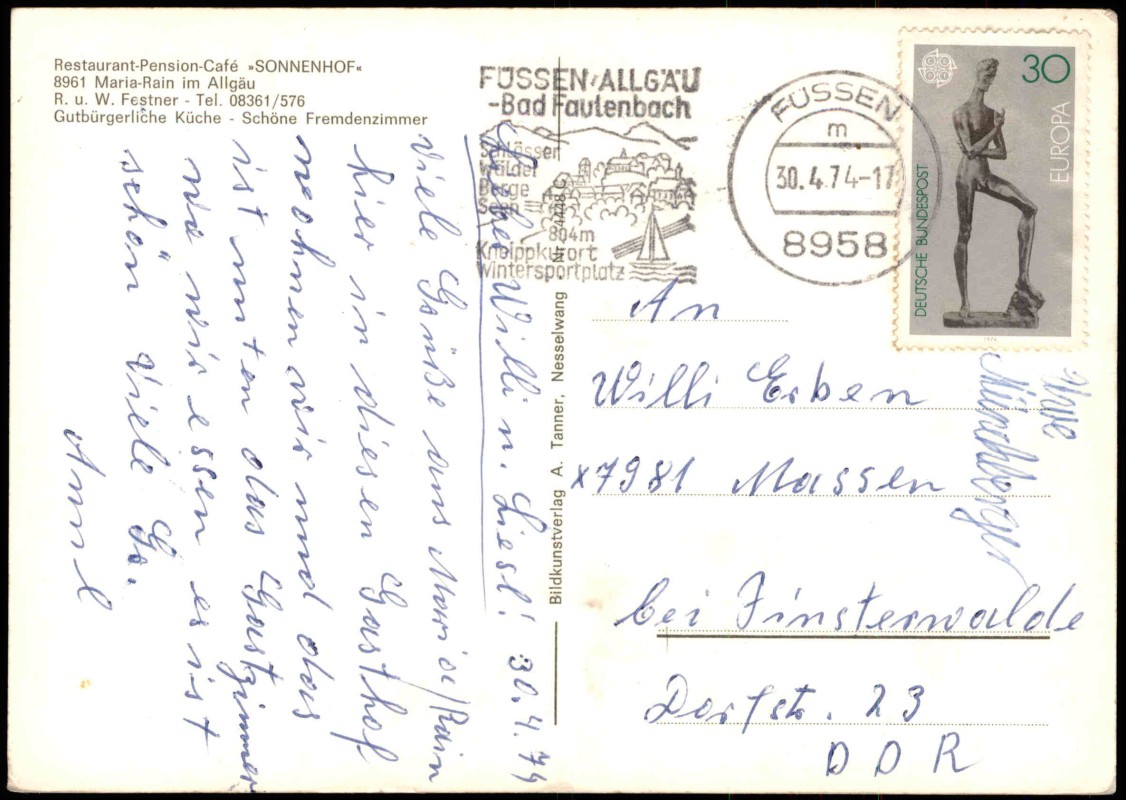 Restaurant-Pension-Café »SONNENHOF«
8961 Maria-Rain im Allgäu
R. u. W. Festner - Tel. 08361/576
Gutbürgerliche Küche - Schöne Fremdenzimmer
FÜSSEN/ALLGÄU
-Bad Faulenbach
Schlösser
Wälder
Berge
Seen
804m
Kneippkurort
Wintersportplatz
FÜSSEN
m
30.4.74-17
8958
30
EUROPA
DEUTSCHE BUNDESPOST
1974
Bildkunstverlag A. Tanner, Nesselwang
Lieber Willi u. Liesl! 30.4.74
Viele Grüße aus Maria/Rain
hier in diesen Gasthof
wohnen wir und das
ist unten das Gastzimmer
wo wir essen es ist
schön Viele Gr.
An
Willi Erben
x7981 Massen
bei Finsterwalde
Dorfstr. 23
DDR
Uwe